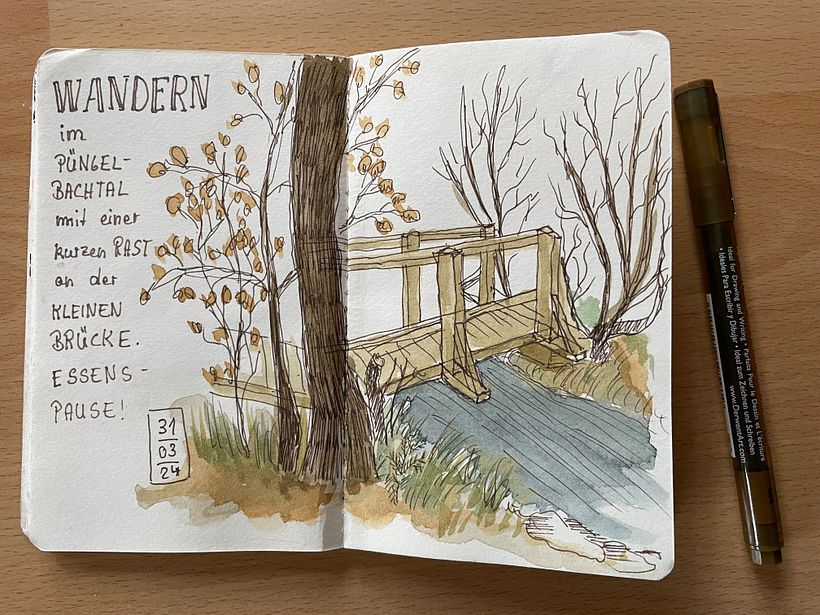 WANDERN
im
PÜNGEL-
BACHTAL
mit einer
kurzen RAST
an der
KLEINEN
BRÜCKE.
ESSENS-
PAUSE!
31
03
24
Ideal for Drawing and Writing • Parfait Pour le Dessin et L'écriture
• Ideales Para Escribir y Dibujar • Ideal zum Zeichnen und Schreiben
www.DerwentArt.com